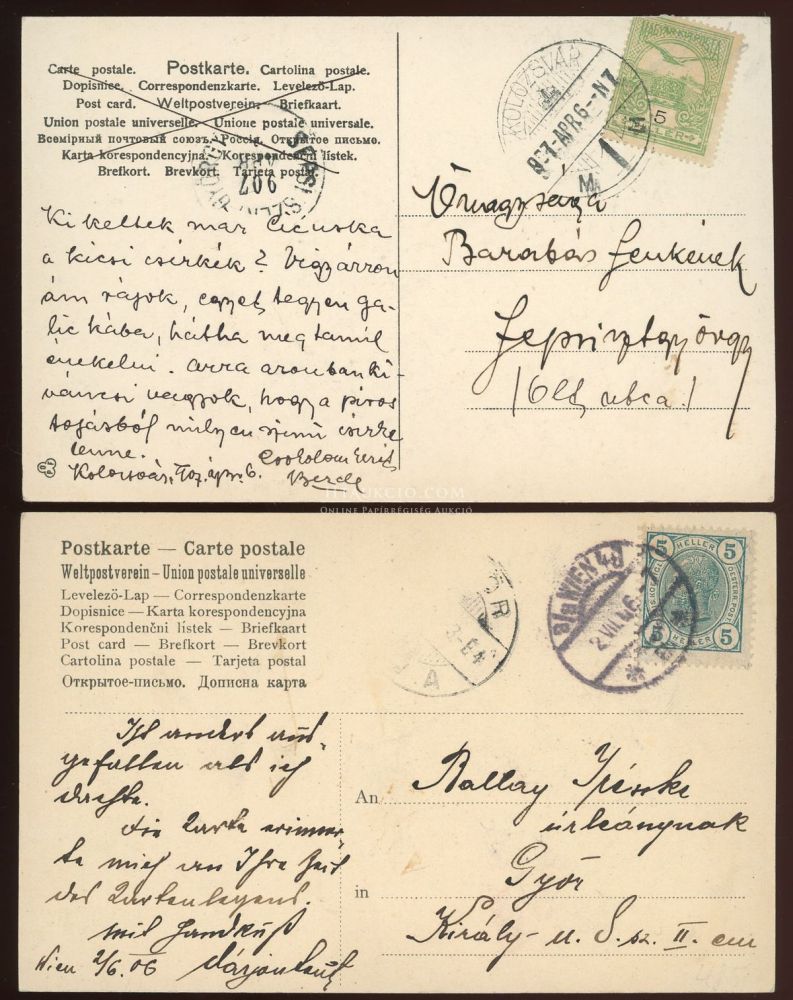 Carte postale. Postkarte. Cartolina postale.
Dopisnice. Correspondenzkarte. Levelező-Lap.
Post card. Weltpostverein. Briefkaart.
Union postale universelle. Unione postale universale.
Всемірный почтовый союзъ. Россія. Открытое письмо.
Karta korespondencyjna. Korespondenční lístek.
Brefkort. Brevkort. Tarjeta postal.
MAGYAR KIR. POSTA
5
KOLOZSVÁR
907 APR 6 - N7
1
907
APR
Ki keltek már Cicuska
a kicsi csirkék? Vigyázzon
ám rájok, egyet tegyen ga-
lickába, hátha megtanúl
énekelni. Arra azonban kí-
váncsi vagyok, hogy a piros
tojásból milyen színű csirke
lenne.
Kolozsvár, 907. ápr. 6.
Őnagysága
Barabás Lenkének
Sepsiszentgyörgy
(Olt utca)
HUNGAROAUKCIO.COM
Online Papírrégiség Aukció
Postkarte — Carte postale
Weltpostverein – Union postale universelle
Levelező-Lap — Correspondenzkarte
Dopisnice — Karta korespondencyjna
Korespondenční lístek — Briefkaart
Post card — Brefkort — Brevkort
Cartolina postale — Tarjeta postal
Открытое-письмо. Дописна карта
5 HELLER 5
5 HELLER 5
WIEN
2 VII 06
Ist anders aus-
gefallen als ich
dachte.
Die Karte erinner-
te mich an Ihre Zeit
des Kartenlegens.
Mit Handkuß
Wien 2/6. 06
An Ballay
úrleánynak
in Győr
Király-u. 8 sz. II. em